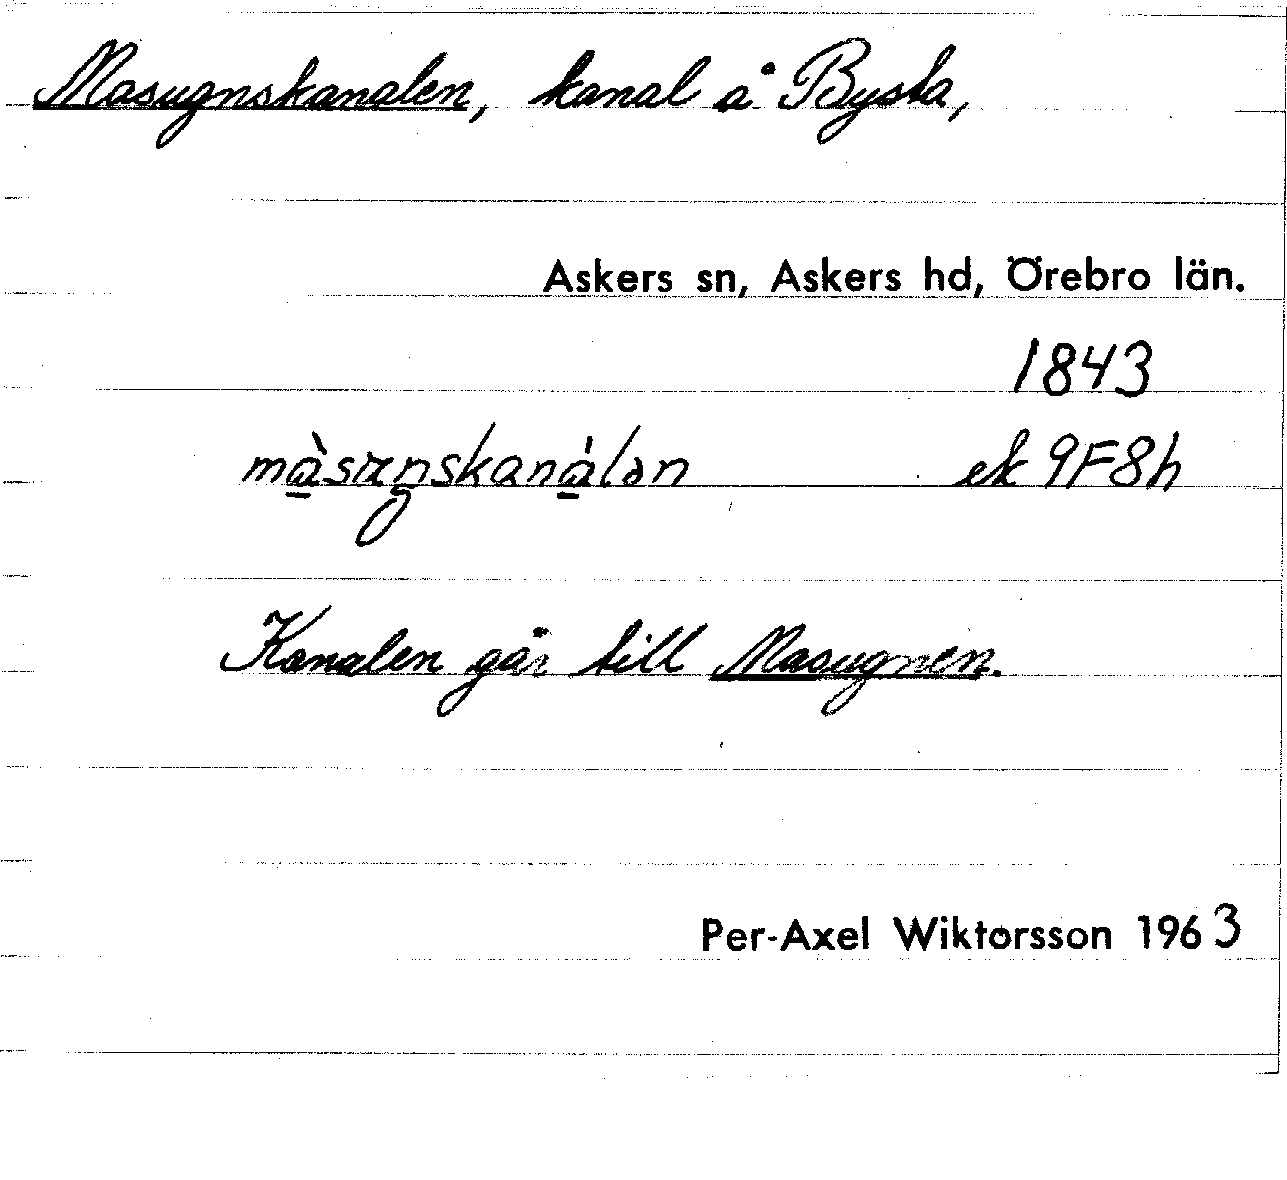 Masugnskanalen, kanal å Bysta,
Askers sn, Askers hd, Örebro län.
1843
ek 9F8h
Kanalen går till Masugnen.
Per-Axel Wiktorsson 1963